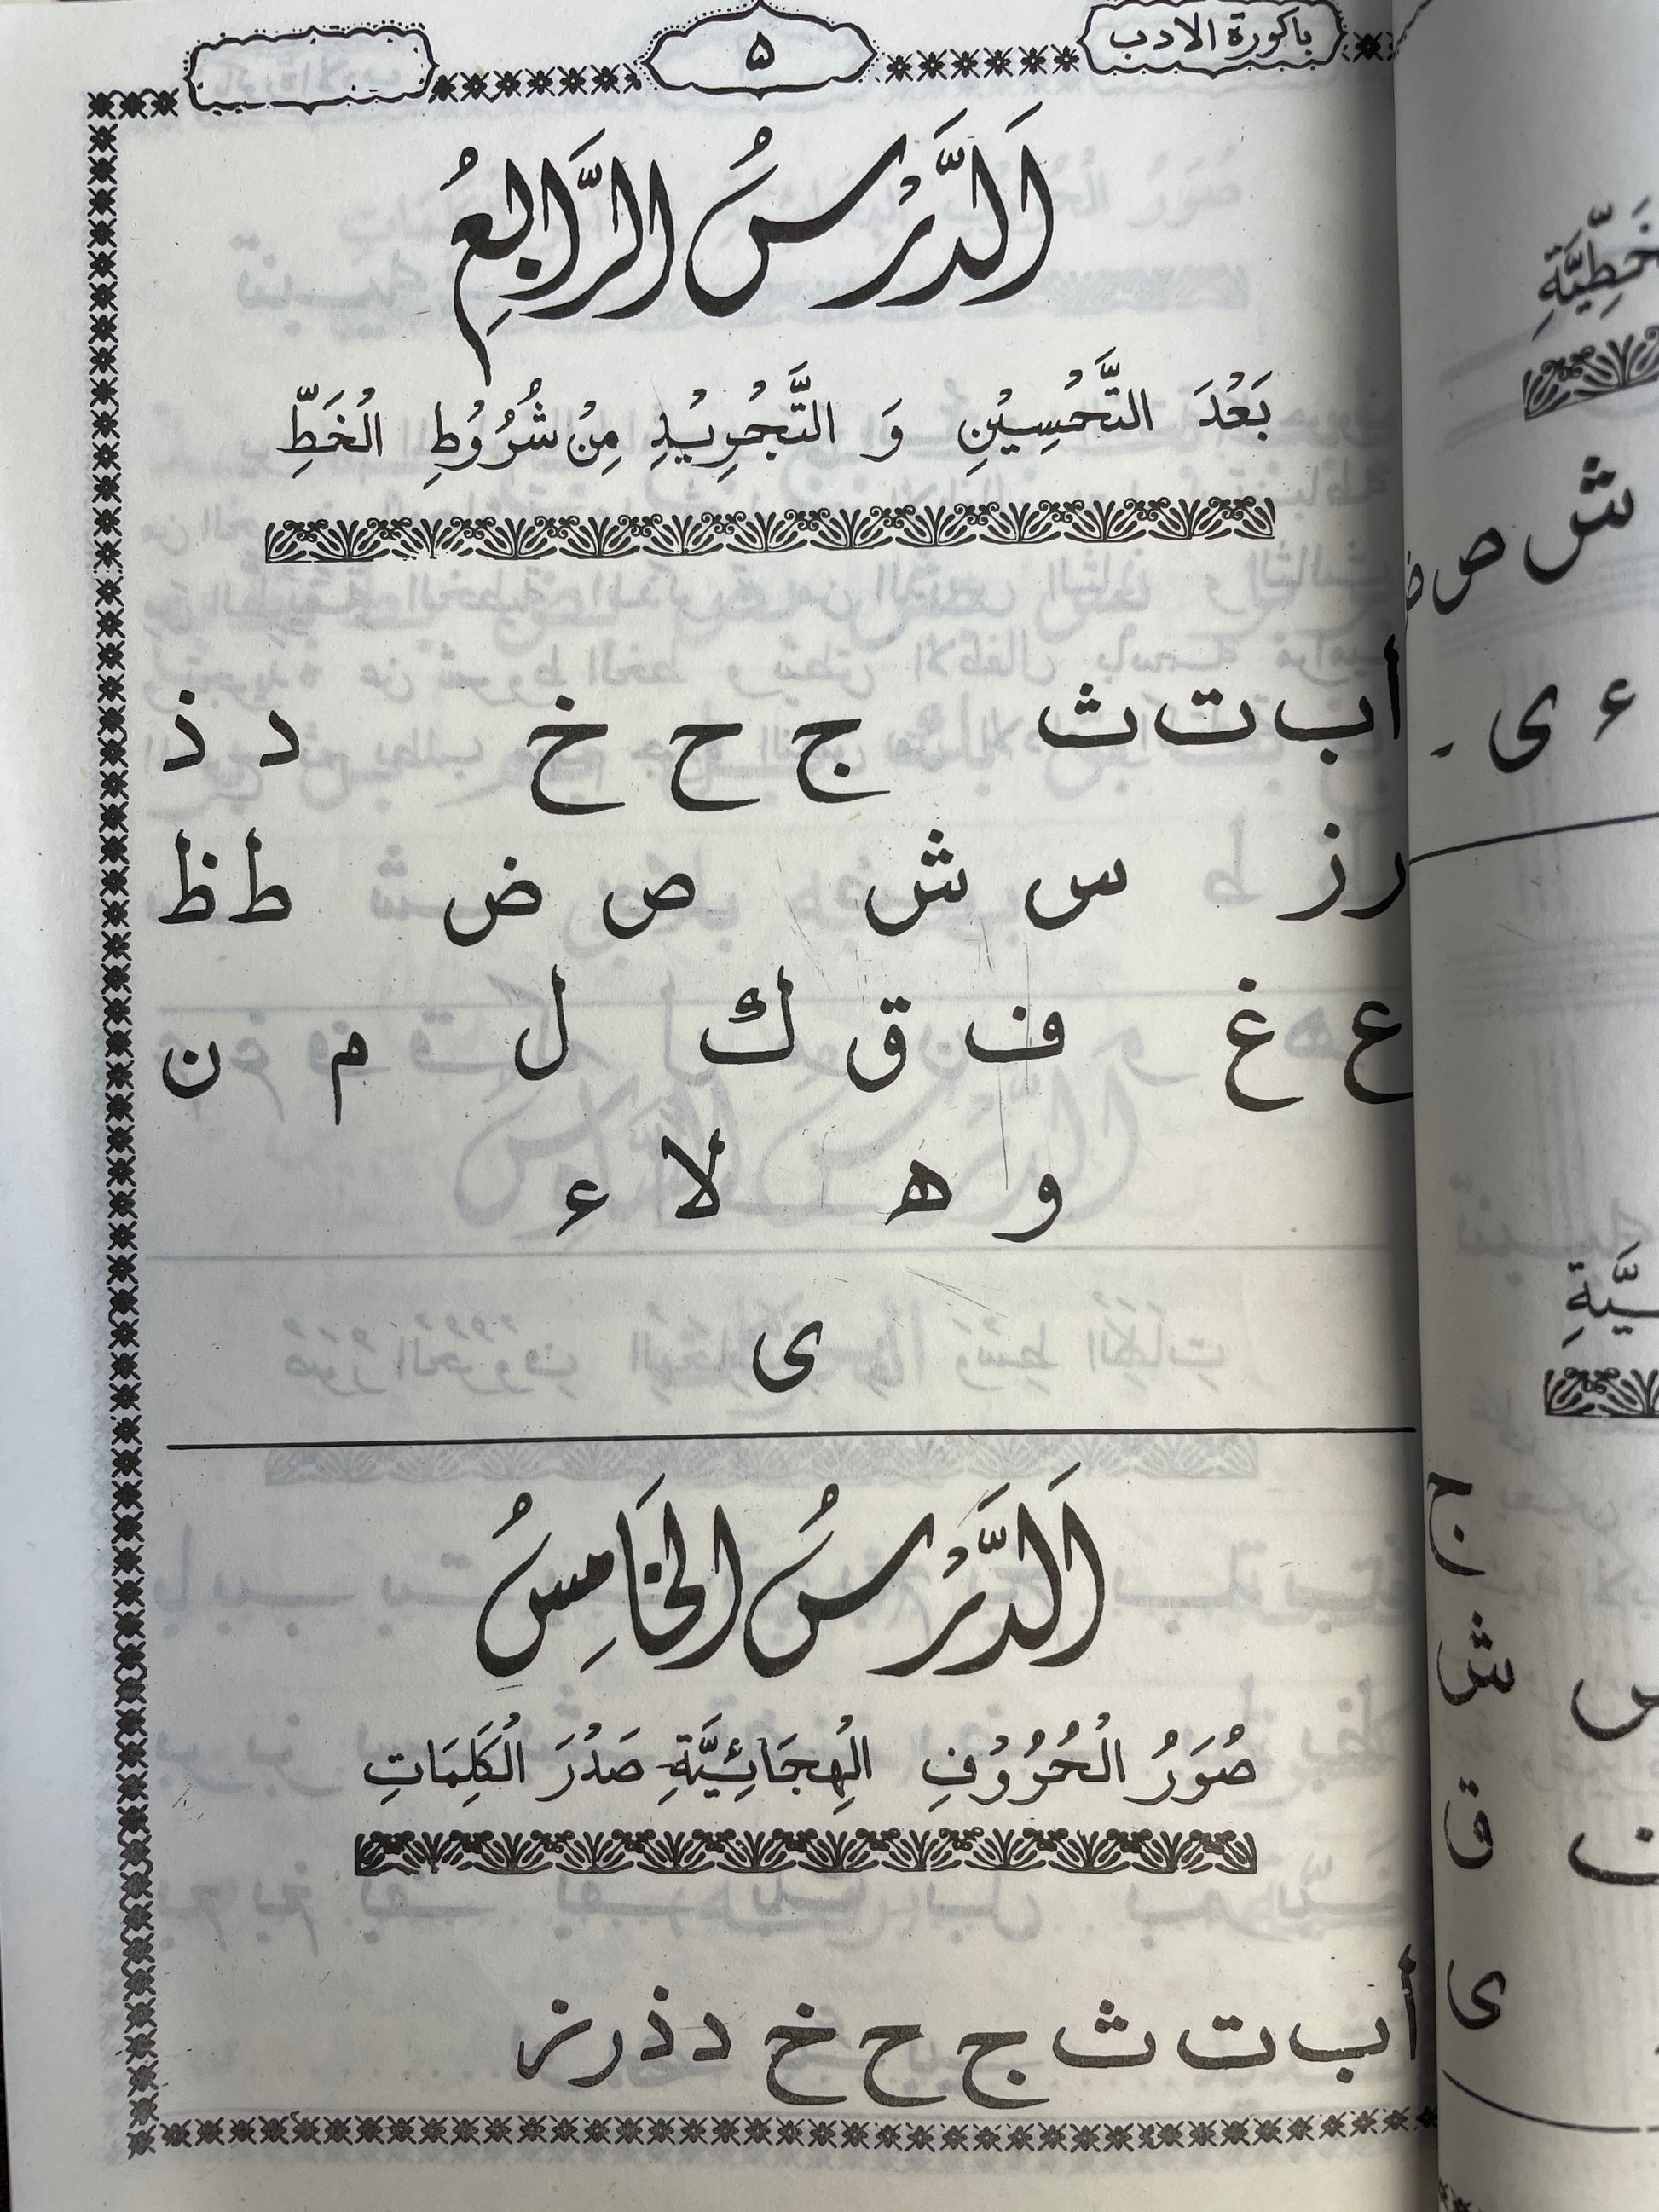 باكورة الادب
۵
اَلدَّرْسُ الرَّابِعُ
بَعْدَ التَّحْسِيْنِ وَ التَّجْرِيْدِ مِنْ شُرُوْطِ الْخَطِّ
أ ب ت ث ج ح خ د ذ
ر ز س ش ص ض ط ظ
ع غ ف ق ك ل م ن
و ه لا ء
ى
اَلدَّرْسُ الْخَامِسُ
صُوَرُ الْحُرُوْفِ الْهِجَائِيَّةِ صَدْرَ الْكَلِمَاتِ
أ ب ت ث ج ح خ د ذ ر ز
ش ص
ء ى
ج
ش
ق
ى